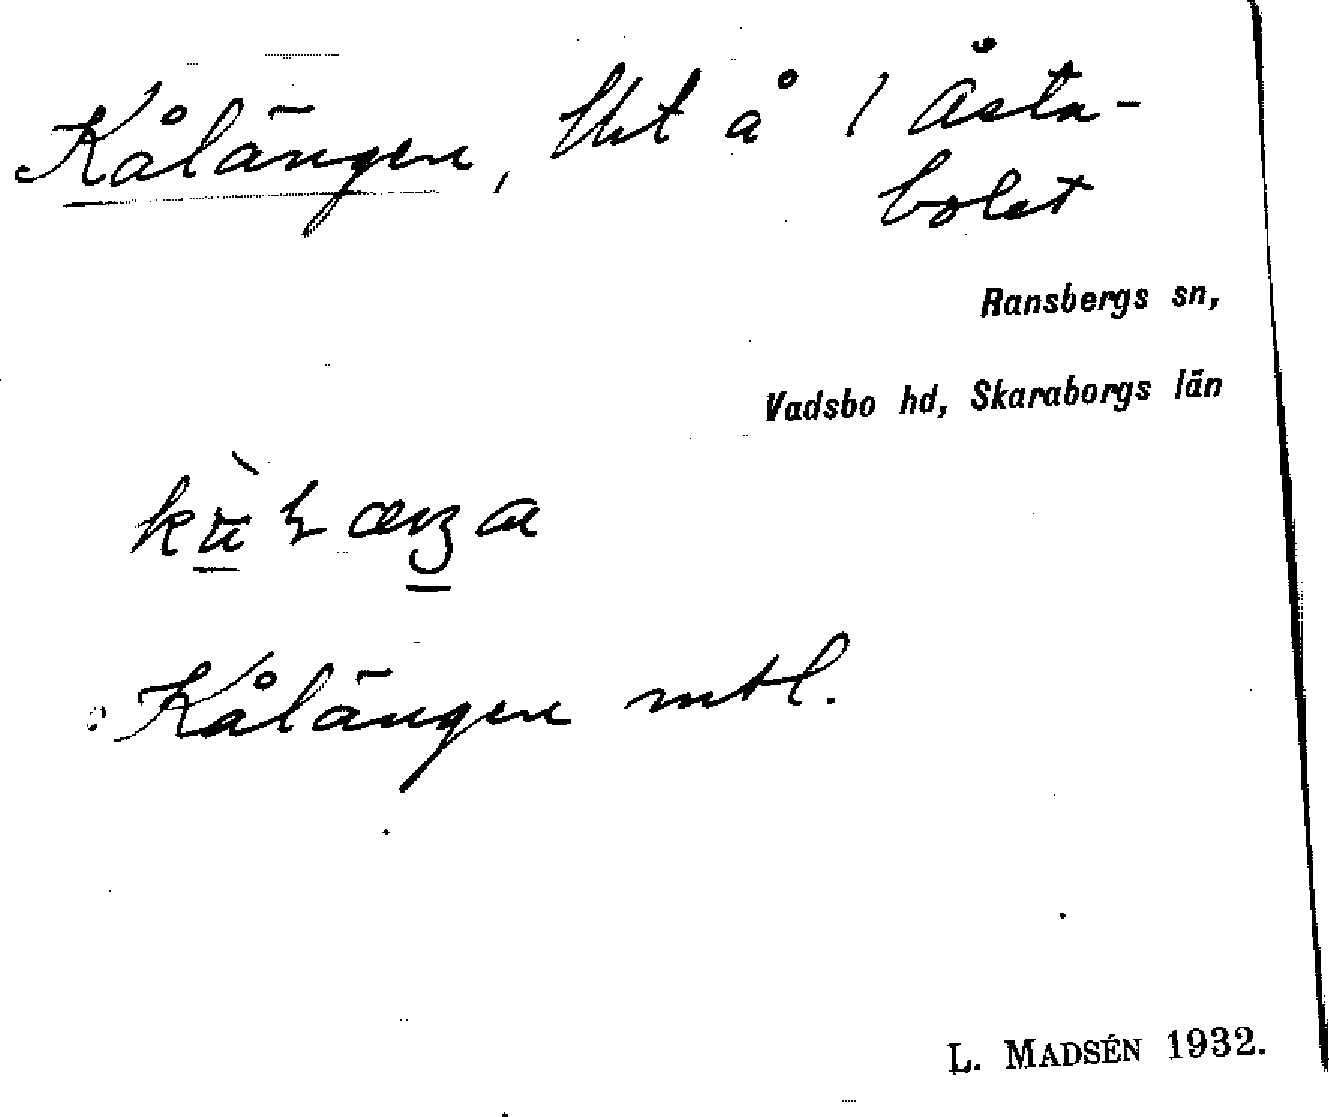 Kålängen, lht å 1 Åsta-
bolet
Ransbergs sn,
Vadsbo hd, Skaraborgs län
Kålängen mtl.
L. MADSÉN 1932.